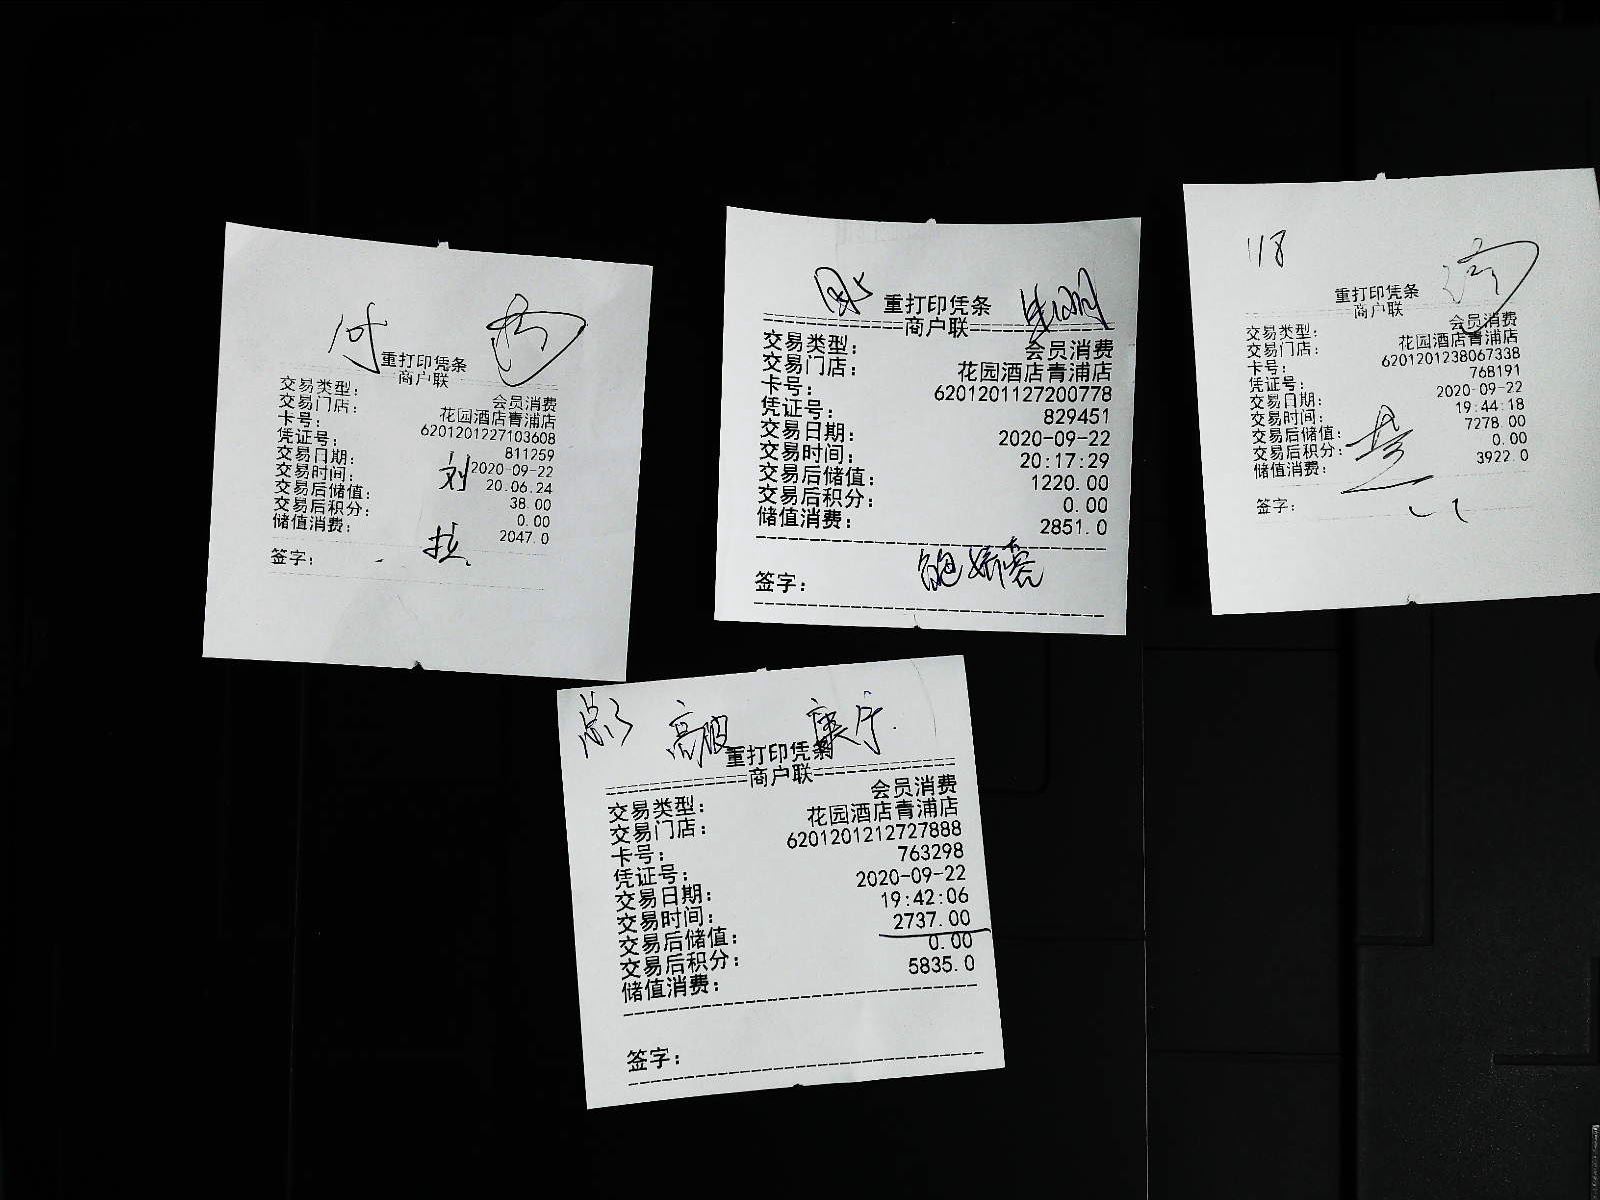 付
重打印凭条
商户联
交易类型： 会员消费
交易门店： 花园酒店青浦店
卡号： 6201201227103608
凭证号： 811259
交易日期： 2020-09-22
交易时间： 20.06.24
交易后储值： 38.00
交易后积分： 0.00
储值消费： 2047.0
刘
签字：
重打印凭条
商户联
交易类型： 会员消费
交易门店： 花园酒店青浦店
卡号： 6201201127200778
凭证号： 829451
交易日期： 2020-09-22
交易时间： 20:17:29
交易后储值： 1220.00
交易后积分： 0.00
储值消费： 2851.0
签字：
118
重打印凭条
商户联
交易类型： 会员消费
交易门店： 花园酒店青浦店
卡号： 6201201238067338
凭证号： 768191
交易日期： 2020-09-22
交易时间： 19:44:18
交易后储值： 7278.00
交易后积分： 0.00
储值消费： 3922.0
签字：
重打印凭条
商户联
交易类型： 会员消费
交易门店： 花园酒店青浦店
卡号： 6201201212727888
凭证号： 763298
交易日期： 2020-09-22
交易时间： 19:42:06
交易后储值： 2737.00
交易后积分： 0.00
储值消费： 5835.0
签字：